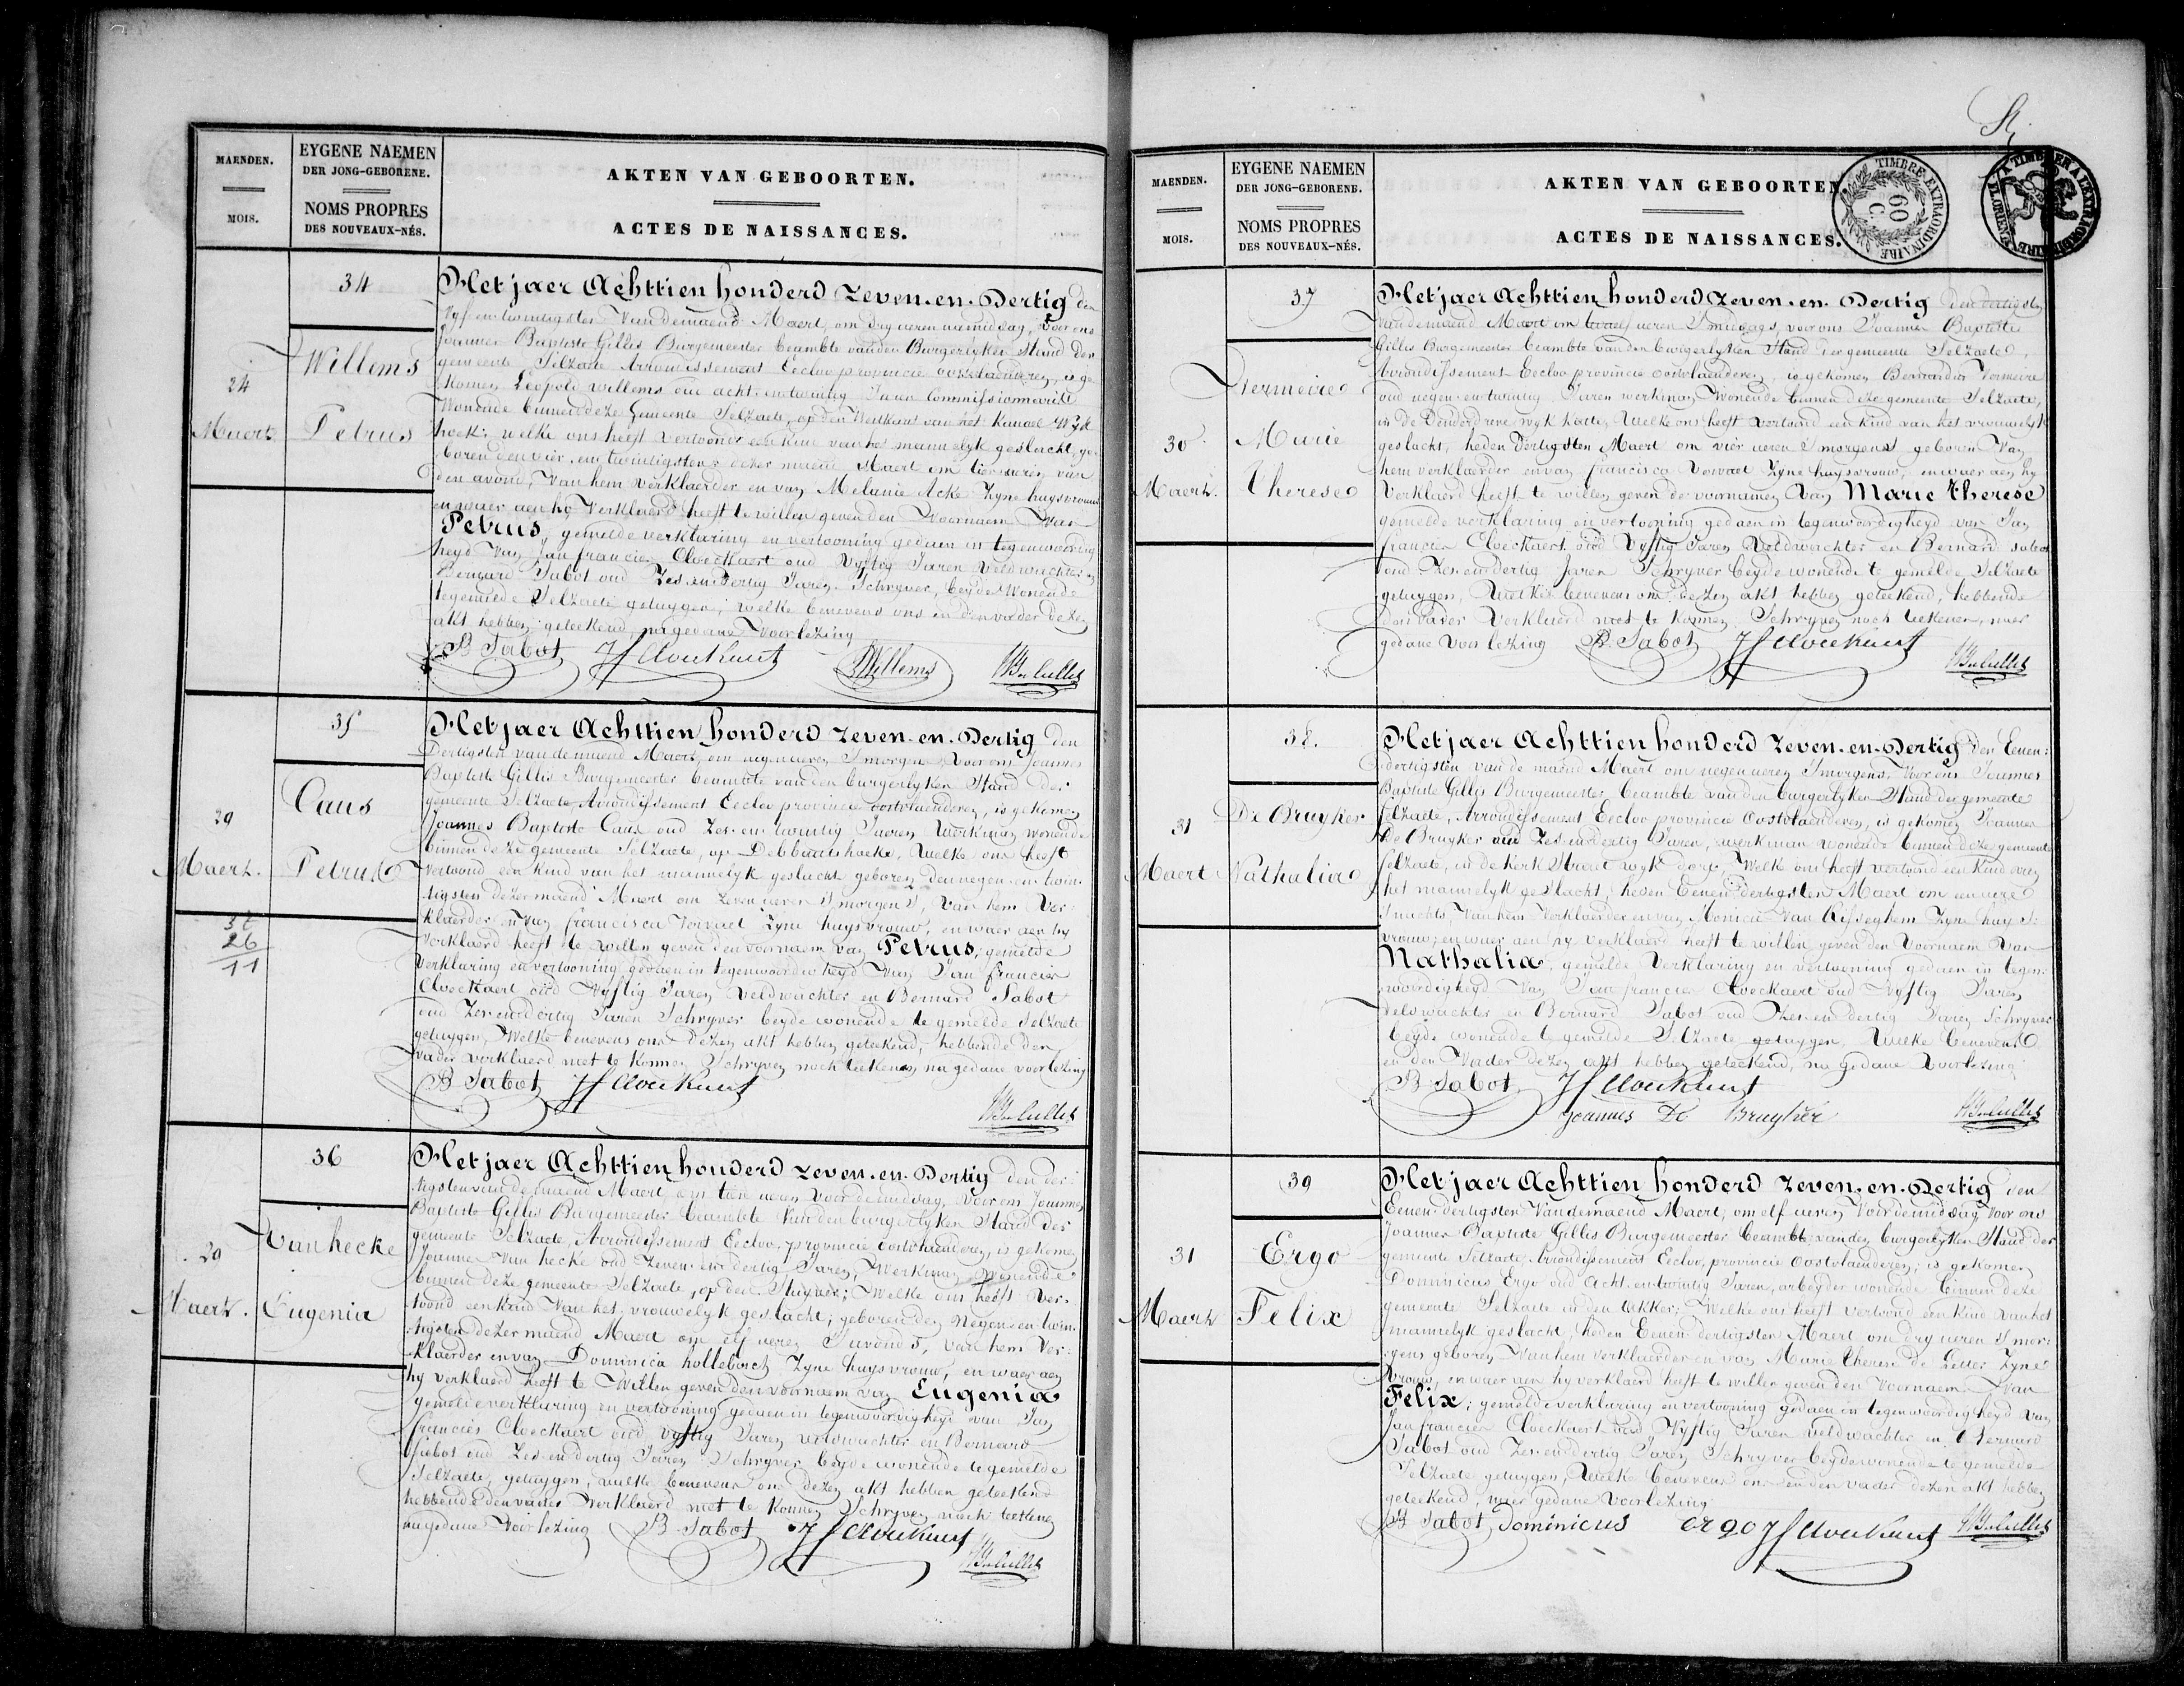 MAENDEN.
MOIS.
EYGENE NAEMEN
DER JONG-GEBORENE.
NOMS PROPRES
DES NOUVEAUX-NÉS.
AKTEN VAN GEBOORTEN.
ACTES DE NAISSANCES.
34
24
Maert
Willems
Petrus
Het jaer Achttien honderd Zeven-en-Dertig den
Vyf en twintigsten Van de maend Maert, om dry ueren namiddag, voor ons
Joannes Baptiste Gillis Burgemeester beambte van den Burgerlyken Stand der
gemeente Selzaete Arrondissement Eecloo provincie oostvlaenderen, is ge-
komen Leopold Willems oud acht-en-twintig Jaren Commissionnaire
Wonende binnen deze Gemeente Selzaete, op den Westkant van het Kanael Wyk
hoek: welke ons heeft vertoond een kind van het mannelyk geslacht, ge-
boren den vier-en-twintigsten dezer maend Maert om tien ueren van
den avond, van hem Verklaerder en van Melanie Acke Zyne huysvrouw
en waer aen hy Verklaerd heeft te willen geven den Voornaem van
Petrus, gemelde verklaring en vertooning gedaen in tegenwoordig
heyd Van Jan francies Cloeckaert oud Vyftig Jaren Veldwachter en
Bernard Sabot oud Zes-en-Dertig Jaren Schryver, beyde Wonende
te gemelde Selzaete getuygen; welke benevens ons en den vader dezen
akt hebben geteekend, na gedane Voorlezing
B Sabot JfCloeckaert LWillems JBn Gillis
35
29
Maert.
36
26
11
Caus
Petrus
Het jaer Achttien honderd Zeven-en-Dertig den
Dertigsten van de maend Maert, om negen ueren Smorgens Voor ons Joannes
Baptiste Gillis Burgemeester beambte van den burgerlyken Stand der
gemeente Selzaete Arrondissement Eecloo provincie oostvlaenderen, is gekomen
Joannes Baptiste Caus oud Zes-en-twintig Jaren Werkman wonende
binnen deze gemeente Selzaete, op Debbauts hoeke, Welke ons heeft
Vertoond een Kind van het mannelyk geslacht geboren den negen-en-twin-
tigsten dezer maend Maert om Zeven ueren Smorgens, Van hem Ver-
klaerder en Van francisca Vervaet Zyne huysvrouw, en waer aen hy
Verklaerd heeft te willen geven den voornaem van Petrus, gemelde
Verklaring en vertooning gedaen in tegenwoordig heyd Van Jan francies
Cloeckaert oud Vyftig Jaren Veldwachter en Bernard Sabot
oud Zes-en-dertig Jaren Schryver beyde wonende te gemelde Selzaete
getuygen, Welke benevens ons dezen akt hebben geteekend, hebbende den
vader verklaerd niet te konnen Schryven noch teekenen, na gedane voorlezing
B Sabot JfCloeckaert
JBn Gillis
36
29
Maert.
Van hecke
Eugenia
Het jaer Achttien honderd Zeven-en-Dertig den der-
tigsten van de maend Maert, om tien ueren voor de middag, Voor ons Joannes
Baptiste Gillis Burgemeester beambte Van den burgerlyken Stand der
gemeente Selzaete, Arrondissement Eecloo, provincie Oostvlaenderen, is gekomen
Joannes Van hecke oud Zeven-en-dertig Jaren, Werkman Wonende
binnen deze gemeente Selzaete, op den Stuyver; Welke ons heeft Ver-
toond een Kind Van het vrouwelyk geslacht, geboren den negen-en-twin-
tigsten dezer maend Maert om elf ueren Savonds, van hem Ver-
klaerder en van Dominica hollebosch Zyne huysvrouw, en waer aen
hy verklaerd heeft te Willen geven den voornaem van Eugenia
gemelde verklaring en vertooning gedaen in tegenwoordigheyd van Jan
francies Cloeckaert oud vyftig Jaren veldwachter en Bernard
Sabot oud Zes-en-dertig Jaren Schryver beyde wonende te gemelde
Selzaete, getuygen, welke benevens ons dezen akt hebben geteekend
hebbende den vader Verklaerd niet te konnen Schryven noch teekenen
na gedane Voorlezing B Sabot JfCloeckaert
JBn Gillis
MAENDEN.
MOIS.
EYGENE NAEMEN
DER JONG-GEBORENE.
NOMS PROPRES
DES NOUVEAUX-NÉS.
AKTEN VAN GEBOORTEN.
ACTES DE NAISSANCES.
TIMBRE EXTRAORDINAIRE
60
C
37
30
Maert.
Vermeire
Marie
Therese
Het jaer Achttien honderd Zeven-en-Dertig den dertigsten
Van de maend Maert om twaelf ueren Smiddags, voor ons Joannes Baptiste
Gillis Burgemeester beambte van den burgerlyken Stand der gemeente Selzaete,
Arrondissement Eecloo provincie oostvlaenderen, is gekomen Bernardus Vermeire
oud negen-en-twintig Jaren werkman, Wonende binnen deze gemeente Selzaete,
in de wyk Welke ons heeft vertoond een kind van het vrouwelyk
geslacht, heden Dertigsten Maert om vier ueren Smorgens geboren Van
hem verklaerder en van francisca Vervaet Zyne huysvrouw, en waer aen hy
Verklaerd heeft te willen geven de voornamen Van Marie therese
gemelde verklaring en vertooning gedaen in tegenwoordigheyd van Jan
francies Cloeckaert oud Vyftig Jaren Veldwachter en Bernard Sabot
oud Zes-en-dertig Jaren Schryver beyde wonende te gemelde Selzaete
getuygen, Welke benevens ons dezen akt hebben geteekend, hebbende
den Vader Verklaerd niet te konnen Schryven noch teekenen, naer
gedane Voorlezing B Sabot JfCloeckaert
JBn Gillis
38.
31
Maert
De Bruyker
Nathalia
Het jaer Achttien honderd Zeven-en-Dertig den Eenen-
dertigsten van de maend Maert om negen ueren Smorgens, Voor ons Joannes
Baptiste Gillis Burgemeester beambte van den burgerlyken Stand der gemeente
Selzaete, Arrondissement Eecloo provincie Oostvlaenderen, is gekomen Joannes
De Bruyker oud Zes-en-dertig Jaren, werkman wonende binnen deze gemeente
Selzaete, in de Kerk Straet wyk dorp, Welke ons heeft vertoond een Kind van
het mannelyk geslacht, heden Eenen dertigsten Maert om een uere
Snachts, Van hem Verklaerder en van Monica Van Kysseghem Zyne huys-
vrouw; en waer aen hy Verklaerd heeft te willen geven den Voornaem Van
Nathalia, gemelde Verklaring en vertooning gedaen in tegen-
woordigheyd Van Jan francies Cloeckaert oud Vyftig Jaren
veldwachter en Bernard Sabot oud Zes-en-dertig Jaren Schryver
beyde wonende te gemelde Selzaete getuygen, Welke benevens
en den Vader dezen akt hebben geteekend, na gedane Voorlezing
B Sabot JfCloeckaert
Joannes De Bruyker JBn Gillis
39
31
Maert
Ergo
Felix
Het jaer Achttien honderd Zeven-en-Dertig den
Eenen dertigsten Van de maend Maert, om elf ueren Voor de middag Voor ons
Joannes Baptiste Gillis Burgemeester beambte van den burgerlyken Stand der
gemeente Selzaete, Arrondissement Eecloo, provincie Oostvlaenderen, is gekomen
Dominicus Ergo oud Acht-en-twintig Jaren, arbeyder wonende binnen deze
gemeente Selzaete in den Akker; Welke ons heeft vertoond een Kind van het
mannelyk geslacht, heden Eenen dertigsten Maert om dry ueren Smor-
gens geboren, Van hem verklaerder en van Marie Therese de Letter Zyne
Vrouw, en waer aen hy verklaerd heeft te willen geven den Voornaem Van
Felix; gemelde verklaring en vertooning gedaen in tegenwoordigheyd Van
Jan francies Cloeckaert oud Vyftig Jaren veldwachter en Bernard
Sabot oud Zes-en-dertig Jaren Schryver beyde wonende te gemelde
Selzaete getuygen, Welke benevens ons en den vader dezen akt hebben
geteekend, naer gedane Voorlezing
B Sabot Dominicus ergo JfCloeckaert JBn Gillis